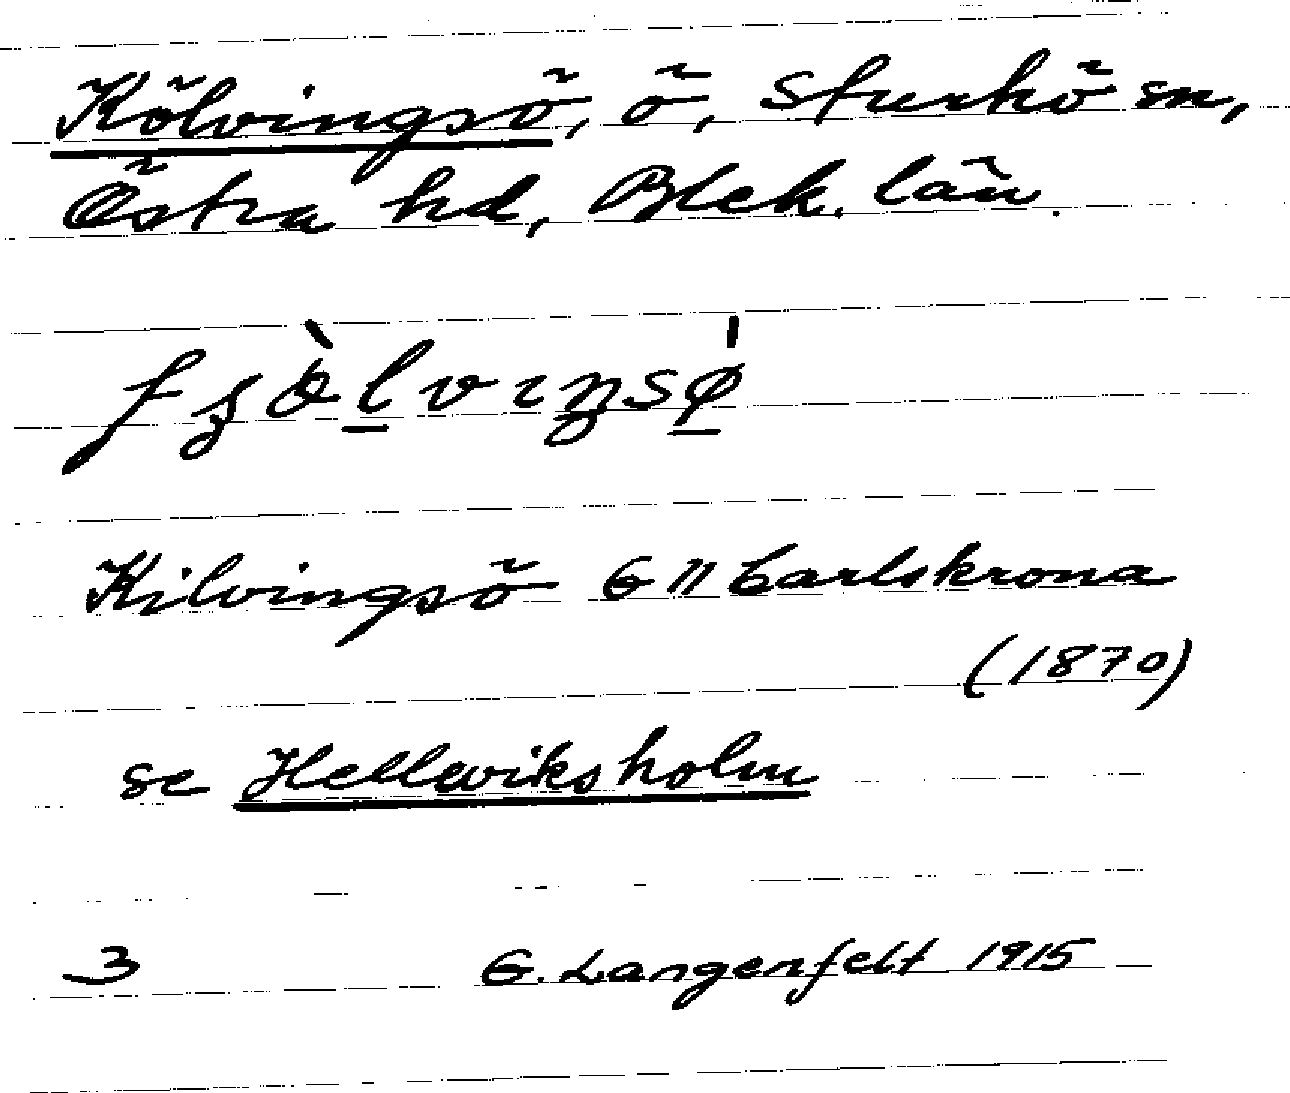 Kölvingsö, ö, Sturkö sn,
Östra hd, Blek. län.
Kilvingsö G 11 Carlskrona
(1870)
se Hellewiksholm
3 G. Langenfelt 1915